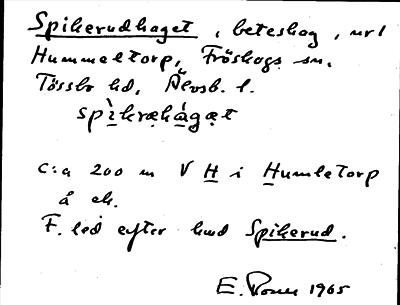 Spikerudhaget, beteshag, nr 1
Hummeltorp, Fröskogs sn.
Tössbo hd, Älvsb. l.
spìkræhágæt
c:a 200 m V H i Humletorp
å ek.
F. led efter hmd Spikerud.
E. 1965